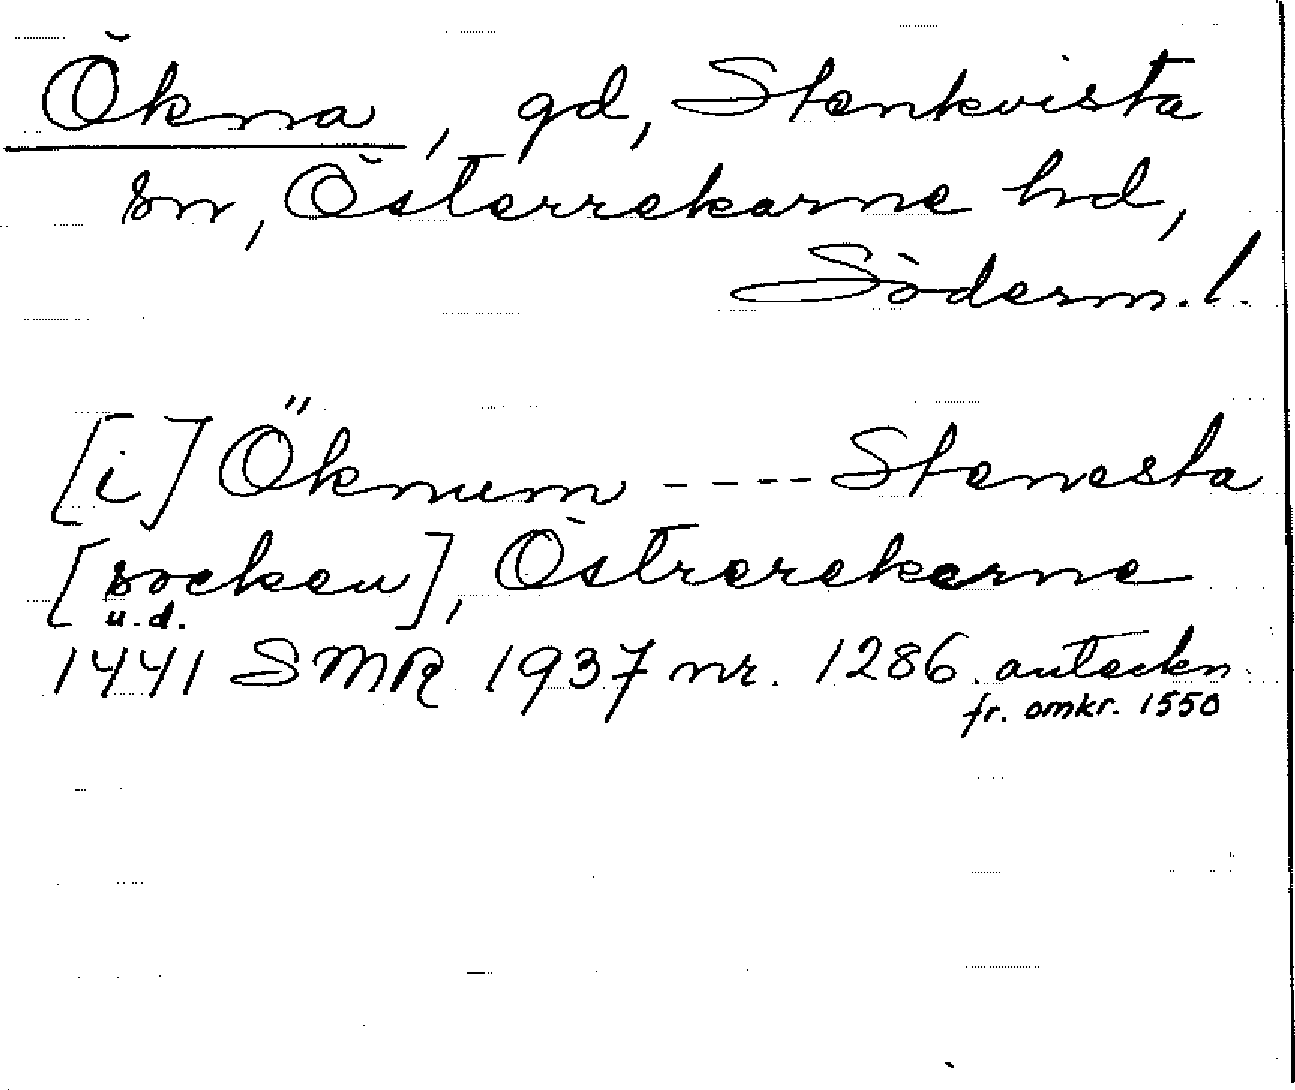 Ökna, gd, Stenkvista
sn, Österrekarne hd,
Söderm. l.
[i] Öknum ---- Stenesta
[socken], Östrerekerne
u.d.
1441 SMR 1937 nr. 1286. anteckn
fr. omkr. 1550